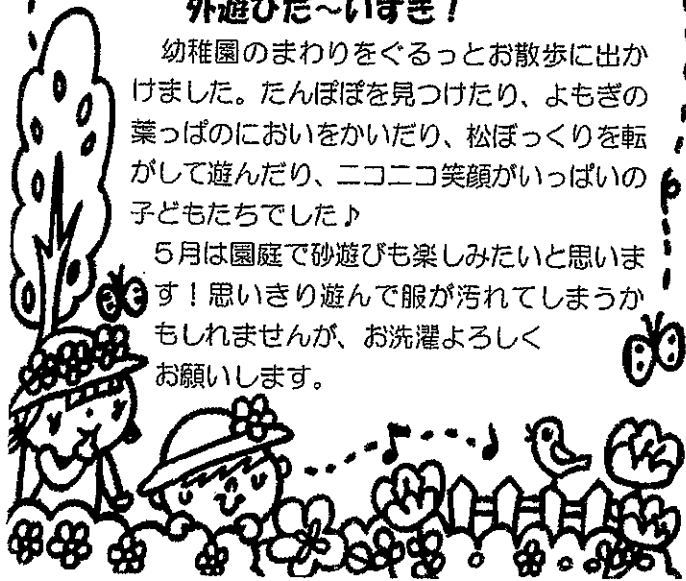 外遊びだ～いすき！
幼稚園のまわりをぐるっとお散歩に出か
けました。たんぽぽを見つけたり、よもぎの
葉っぱのにおいをかいだり、松ぼっくりを転
がして遊んだり、ニコニコ笑顔がいっぱいの
子どもたちでした♪
５月は園庭で砂遊びも楽しみたいと思いま
す！思いきり遊んで服が汚れてしまうか
もしれませんが、お洗濯よろしく
お願いします。